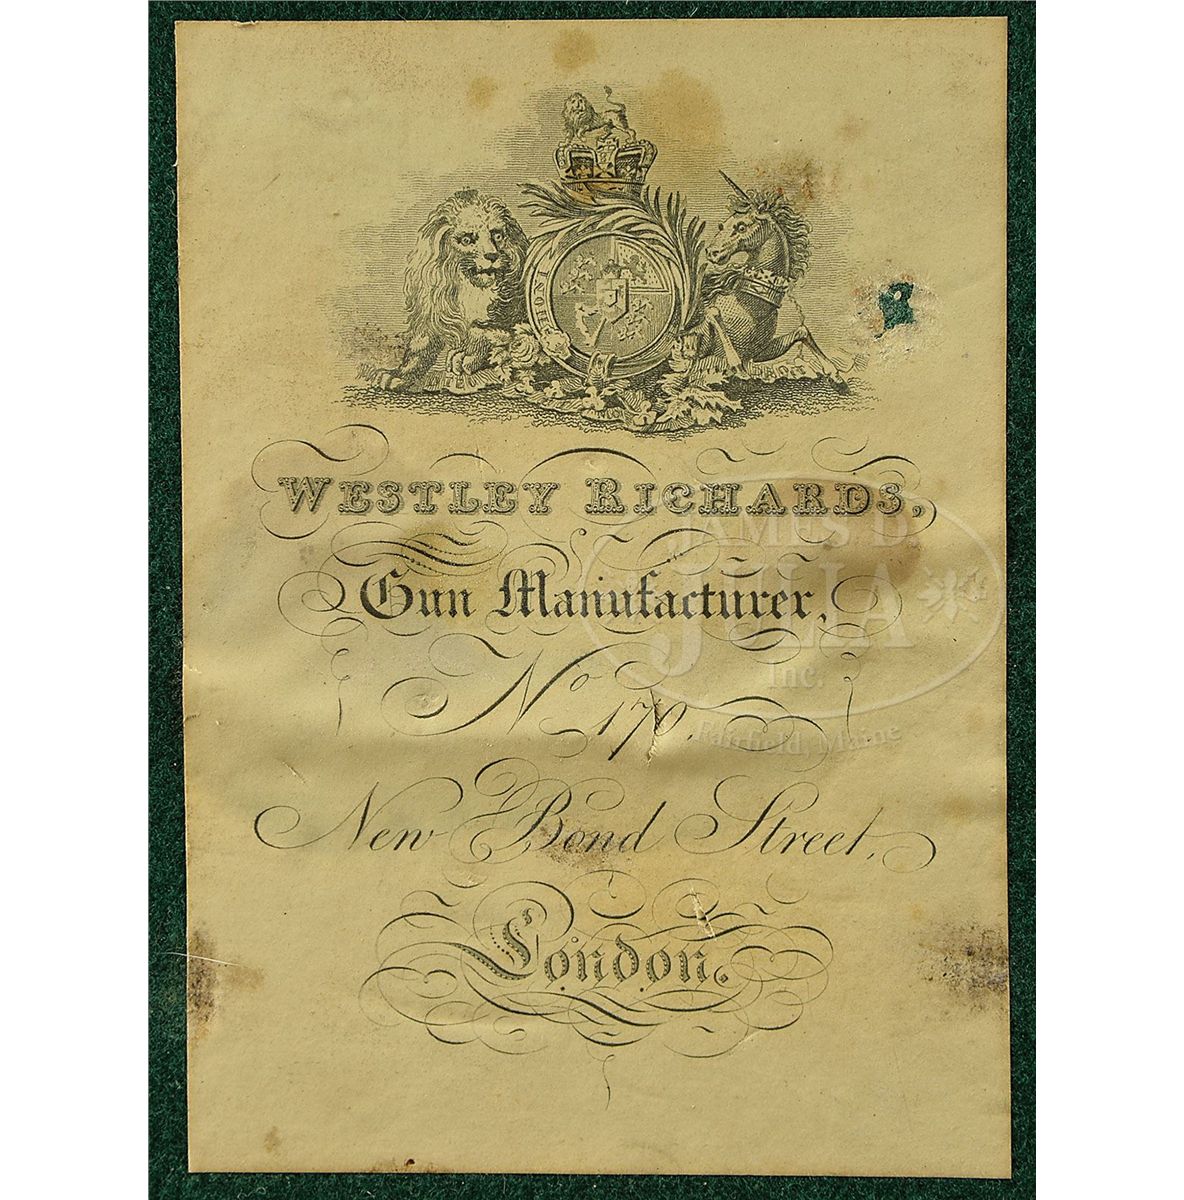 HONI
DROIT
WESTLEY RICHARDS,
Gun Manufacturer,
No 170,
New Bond Street,
London.
JAMES D.
JULIA
Inc.
Fairfield, Maine